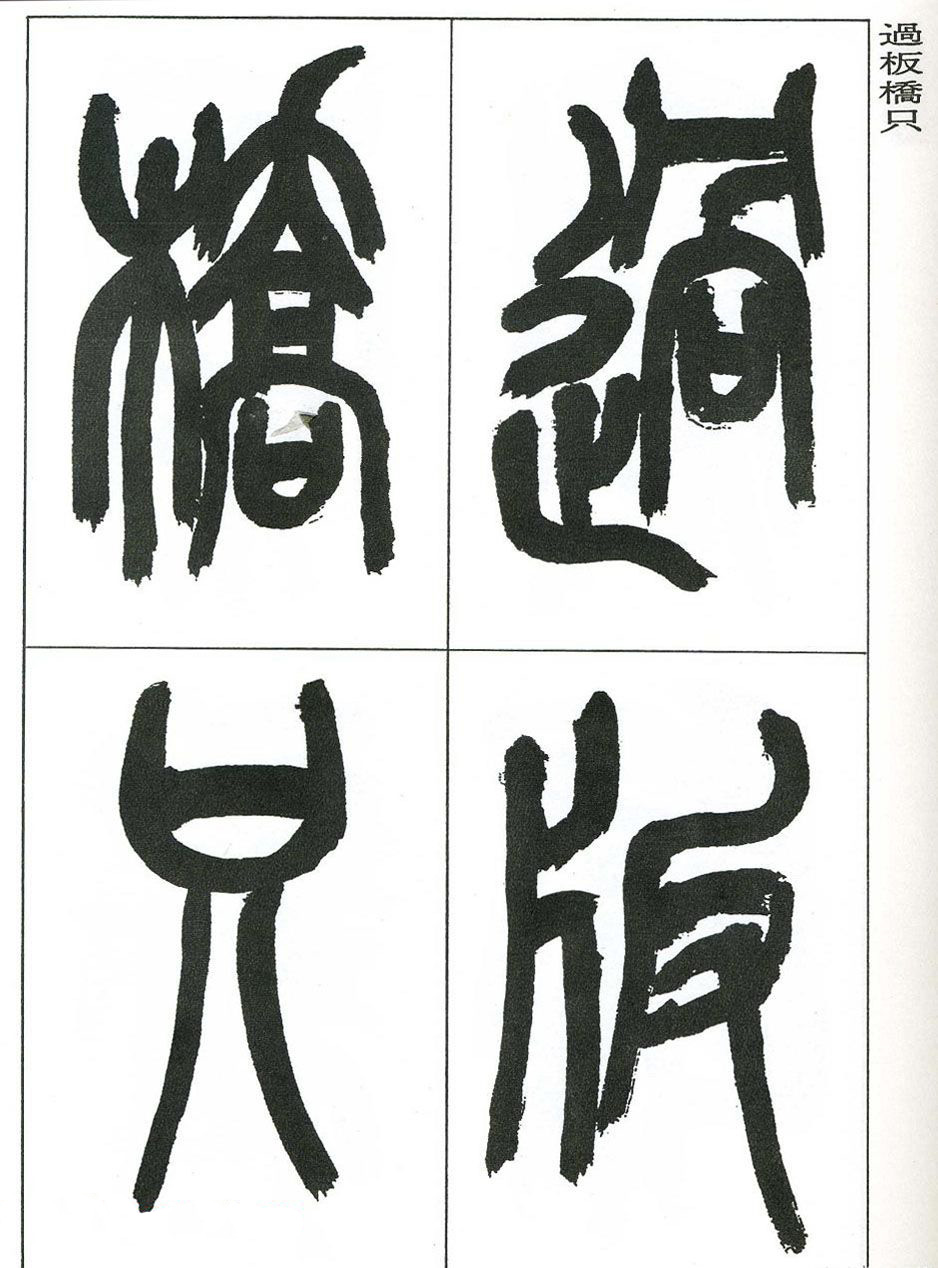 過板橋只
過版
橋只